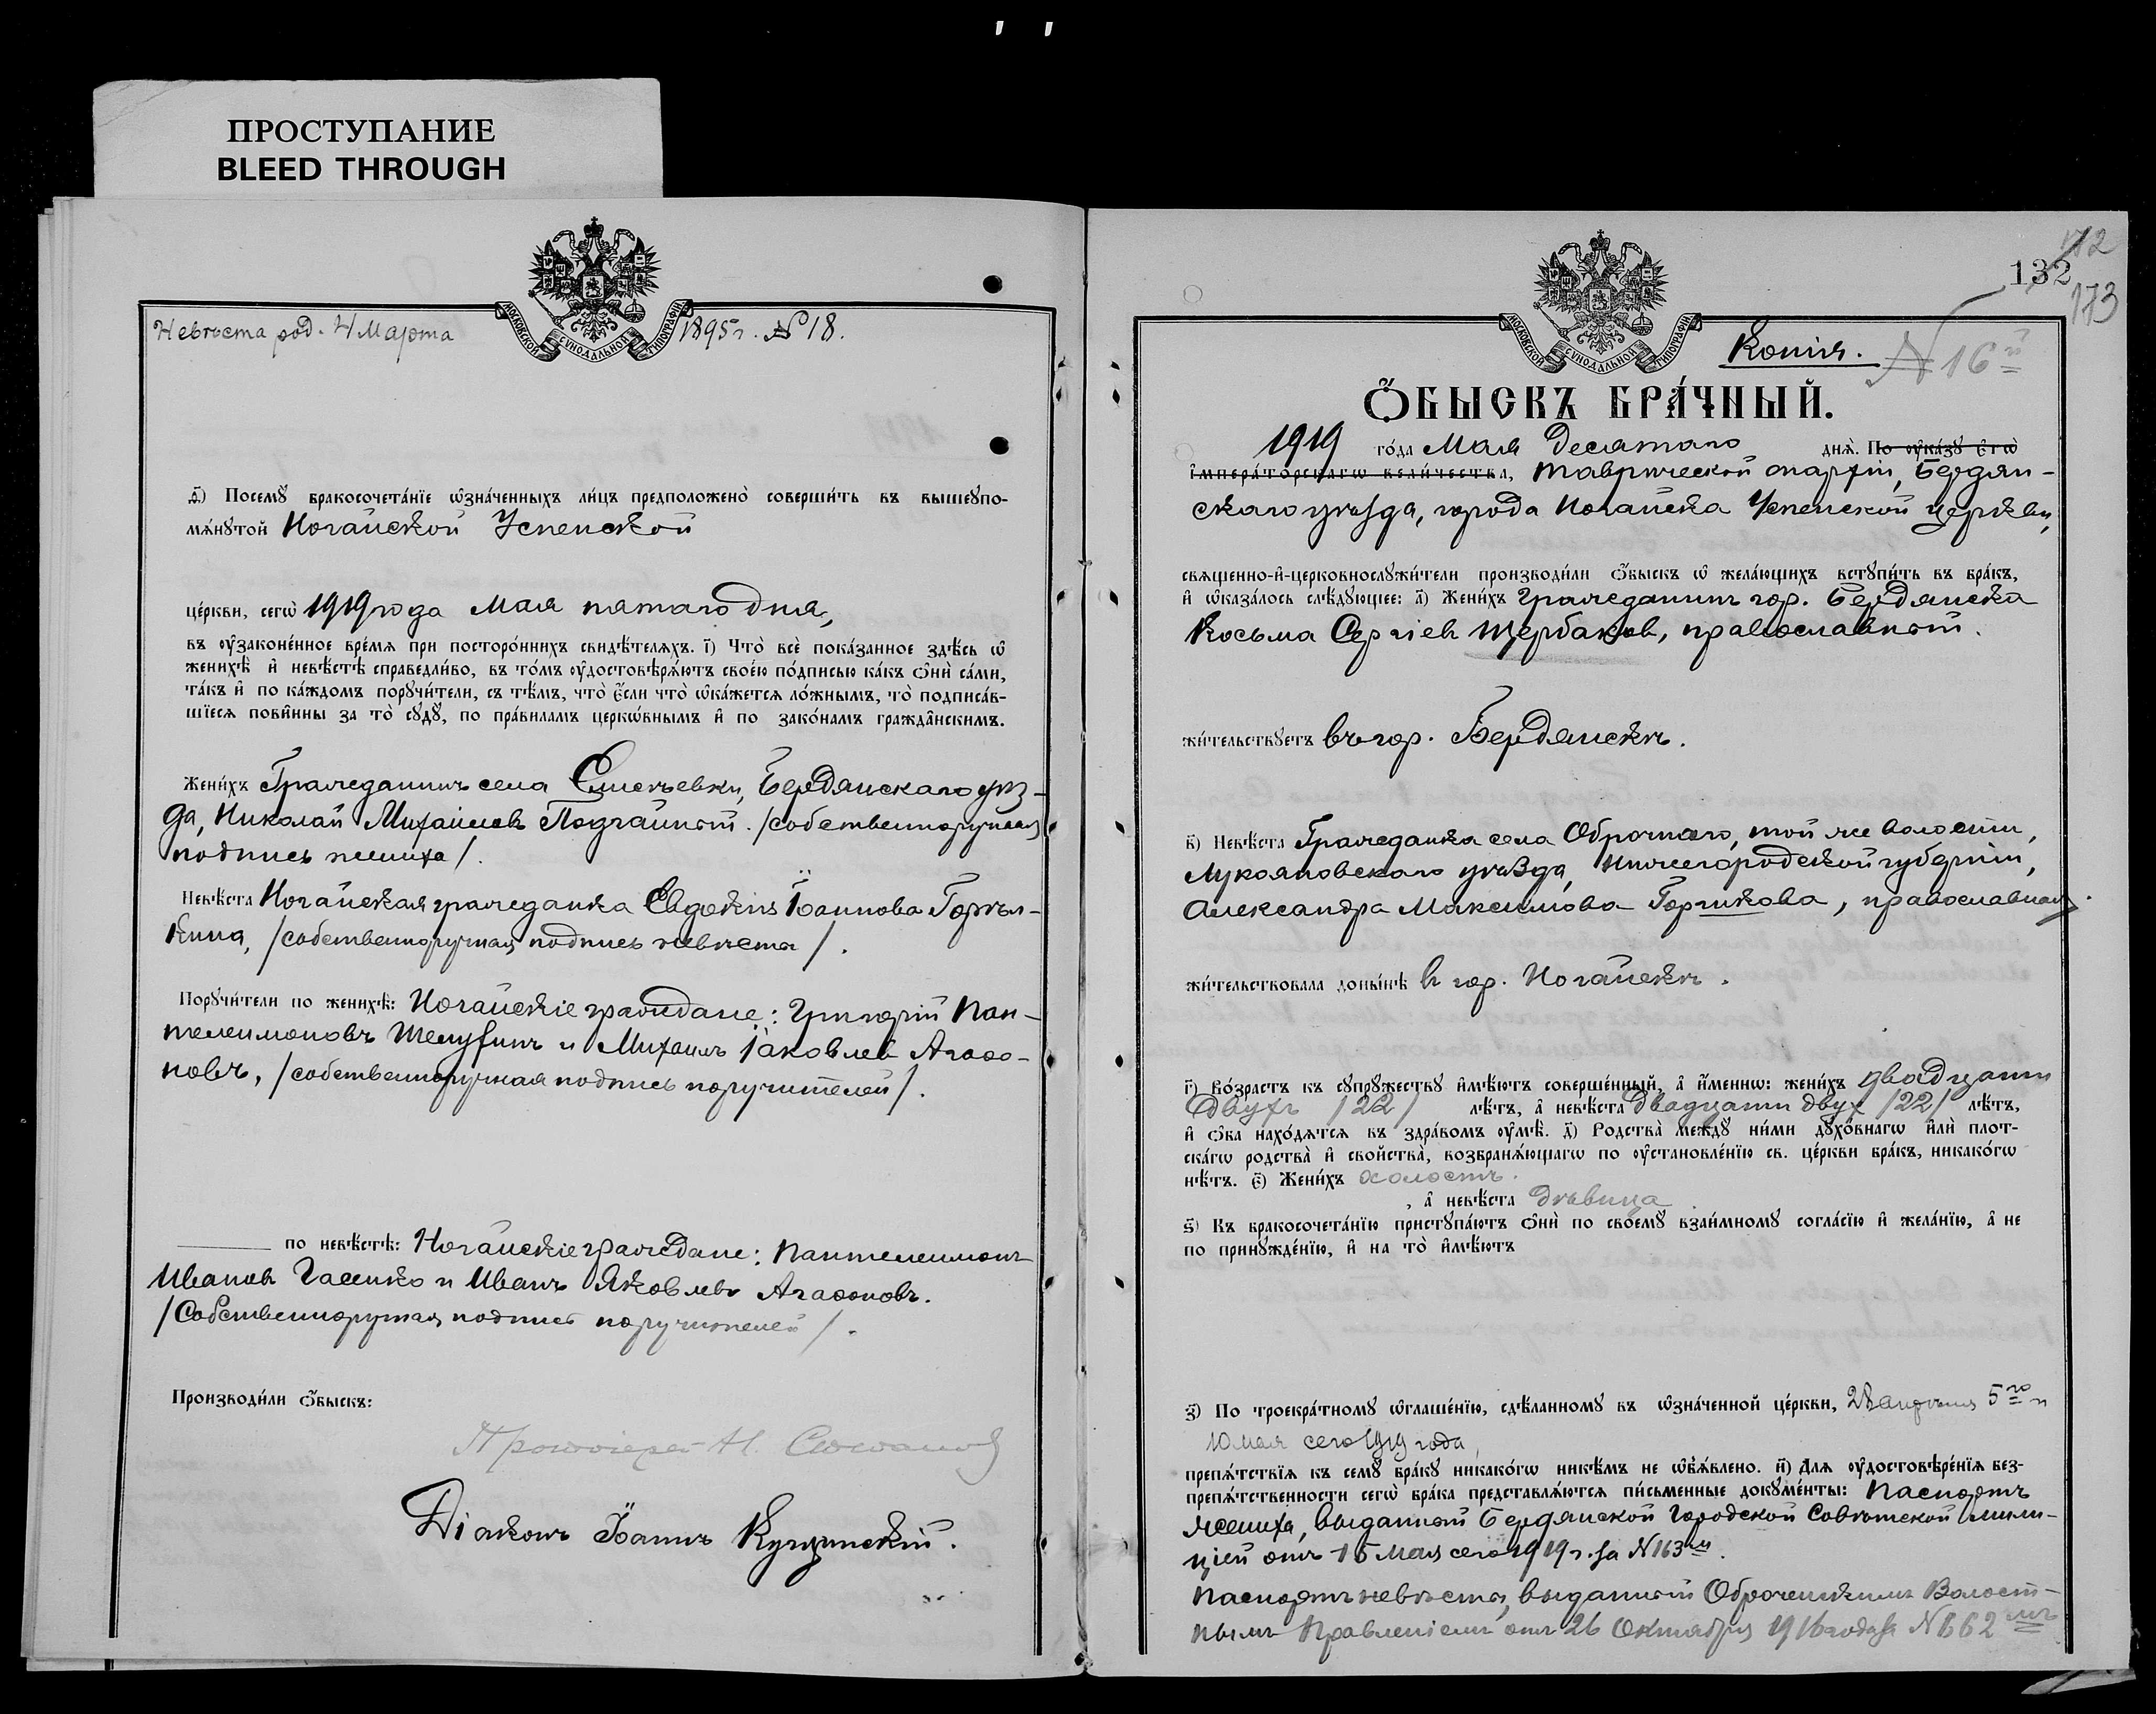 ПРОСТУПАНИЕ
BLEED THROUGH
МОСКОВСКОЙ СѴНОДАЛЬНОЙ ТИПОГРАФІИ
Невѣста род. 4 Марта 1895 г. № 18.
д҃) Посемꙋ бракосочета́нїе ѡ҆зна́ченныхъ ли́цъ предположено̀ соверши́ть въ вышеꙋпо-
мѧ́нꙋтой Ногайской Успенской
це́ркви, сегѡ̀ 1919 года Мая пятаго дня,
въ ᲂу҆законе́нное вре́мѧ при посторо́ннихъ свидѣ́телѧхъ. і҃) Что̀ всѐ пока́занное здѣ́сь ѡ҆
женихѣ̀ и҆ невѣ́стѣ справедли́во, въ то́мъ ᲂу҆достовѣрѧ́ютъ свое́ю по́дписью ка́къ ѻ҆нѝ са́ми,
та́къ и҆ по ка́ждомъ порꙋчи́тели, съ тѣ́мъ, что̀ є҆́сли что̀ ѡ҆ка́жетсѧ ло́жнымъ, то̀ подписа́в-
шїесѧ пови́нны за то̀ сꙋдꙋ̀, по пра́виламъ церкѡ́внымъ и҆ по зако́намъ гражда́нскимъ.
Жени́хъ Гражданинъ села Бердянскаго уѣз-
да, Николай Михаиловъ /собственноручная
подпись жениха/.
Невѣ́ста Ногайская гражданка Евдокія Іоаннова
/собственноручная подпись невѣсты/.
Порꙋчи́тели по женихѣ̀: Ногайскіе граждане: Григорій Пан-
телеимоновъ и Михаилъ Іаковлевъ Агаѳо-
новъ, /собственноручная подпись поручителей/.
по невѣ́стѣ: Ногайскіе граждане: Пантелеимонъ
Ивановъ и Иванъ Яковлевъ Агаѳоновъ.
/Собственноручная подпись поручителей/.
Производи́ли ѻ҆́быскъ:
Протоіерей Н.
Діаконъ Іоаннъ
МОСКОВСКОЙ СѴНОДАЛЬНОЙ ТИПОГРАФІИ
172
132
173
Копія. № 16й
Ѻ҆́БЫСКЪ БРА́ЧНЫЙ.
1919 го́да Мая Десятаго днѧ̀. По ᲂу҆ка́зꙋ є҆гѡ̀
і҆мпера́торскагѡ вели́чества, Таврической епархіи, Бердян-
скаго уѣзда, города Ногайска Успенской церкви,
свѧщенно-и҆-церковнослꙋжи́тели производи́ли ѻ҆́быскъ ѡ҆ жела́ющихъ встꙋпи́ть въ бра́къ,
и҆ ѡ҆каза́лось слѣ́дꙋющее: а҃) Жени́хъ Гражданинъ гор. Бердянска
Косьма Сергіевъ Щербаковъ, православный.
жи́тельствꙋетъ въ гор. Бердянскѣ.
в҃) Невѣ́ста Гражданка села Оброчнаго, той же волости,
Лукояновскаго уѣзда, Нижегородской губерніи,
Александра Максимова Горшкова, православная.
жи́тельствовала доны́нѣ в гор. Ногайскѣ.
г҃) Во́зрастъ къ сꙋпрꙋ́жествꙋ и҆мѣ́ютъ соверше́нный, а҆ и҆́меннѡ: жени́хъ двадцати
двухъ /22/ лѣ́тъ, а҆ невѣ́ста двадцати двух /22/ лѣ́тъ,
и҆ ѻ҆́ба нахо́дѧтсѧ въ здра́вомъ ᲂу҆мѣ̀. д҃) Родства̀ междꙋ̀ ни́ми дꙋхо́внагѡ и҆лѝ плот-
ска́гѡ родства̀ и҆ сво́йства̀, возбранѧ́ющагѡ по ᲂу҆становле́нїю св. це́ркви бра́къ, никако́гѡ
нѣ́тъ. є҃) Жени́хъ холостъ.
, а҆ невѣ́ста дѣвица
ѕ҃) Къ бракосочета́нїю пристꙋпа́ютъ ѻ҆нѝ по своемꙋ̀ взаи́мномꙋ согла́сїю и҆ жела́нїю, а҆ не
по принꙋжде́нїю, и҆ на то̀ и҆мѣ́ютъ
з҃) По троекра́тномꙋ ѡ҆глаше́нїю, сдѣ́ланномꙋ въ ѡ҆зна́ченной це́ркви, 28 апрѣля 5го и
10 мая сего 1919 года,
препѧ́тствїѧ къ семꙋ̀ бра́кꙋ никако́гѡ никѣ́мъ не ѡ҆б̾ѧ́влено. и҃) Длѧ ᲂу҆достовѣре́нїѧ без-
препѧ́тственности сегѡ̀ бра́ка представлѧ́ютсѧ пи́сьменные докꙋме́нты: Паспортъ
жениха, выданный Бердянской Городской Совѣтской мили-
ціей отъ 15 Мая сего 1919 г. за № 163м.
Паспортъ невѣсты, выданный Оброченскимъ Волост-
нымъ Правленіемъ отъ 26 Октября 1916 года за № 662мъ